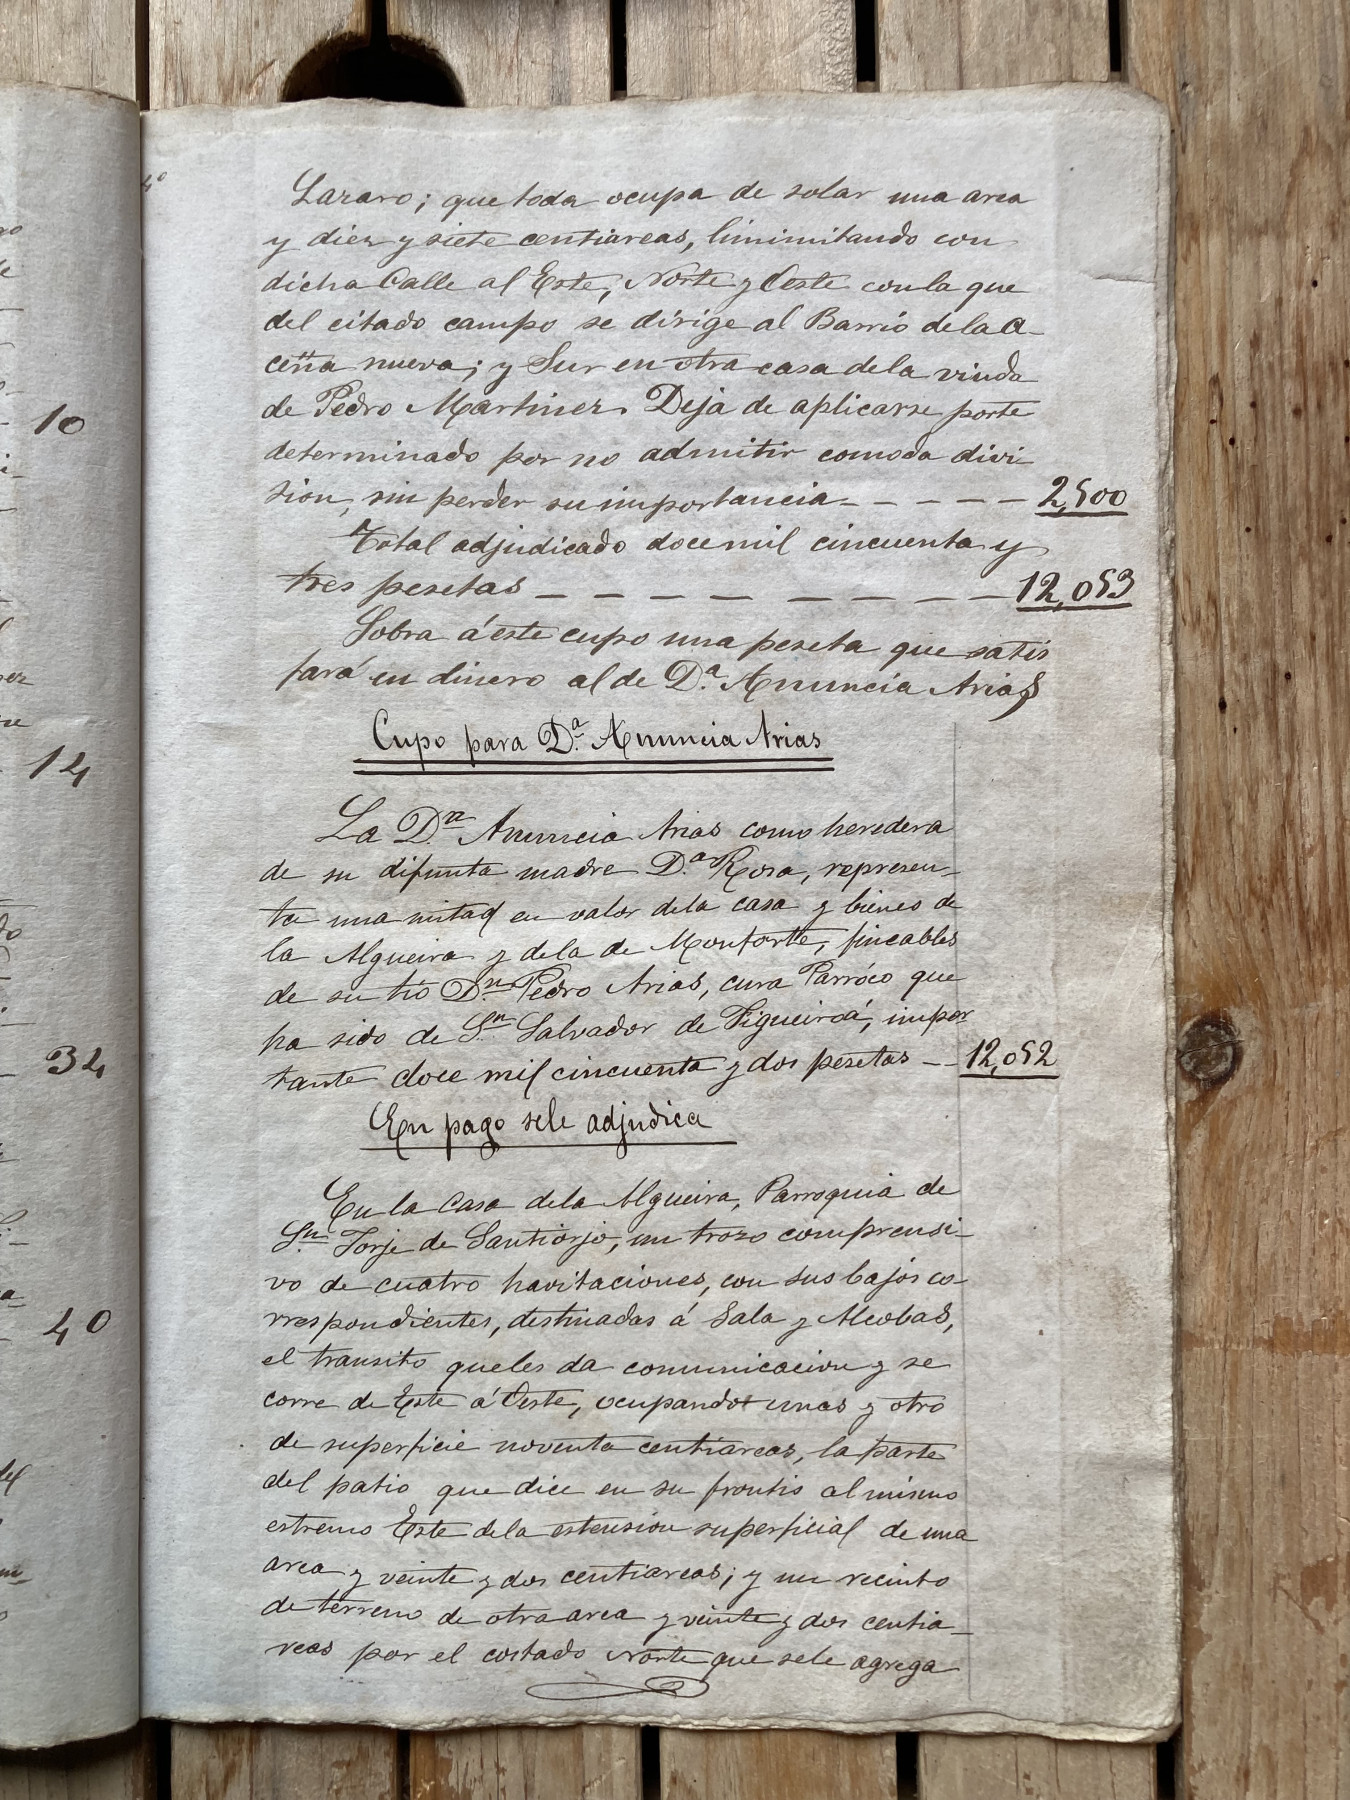 4º
Lazaro; que toda ocupa de solar una area
y diez y siete centiareas, liminitando con
dicha Calle al Este, Norte y Oeste con la que
del citado campo se dirige al Barrio de la A-
ceña nueva; y Sur en otra casa de la viuda
de Pedro Martinez. Deja de aplicarse porte
determinado por no admitir comoda divi-
sion, sin perder su importancia - - - - - 2,500
Total adjudicado doce mil cincuenta y
tres pesetas - - - - - - - - - 12,053
Sobra á este cupo una peseta que satis
fará en dinero al de D.ª Anuncia Arias
Cupo para D.ª Anuncia Arias
La D.ña Anuncia Arias como heredera
de su difunta madre D.ª Rosa, represen-
ta una mitad en valor de la casa y bienes de
la Algueira y de la de Monforte, fincables
de su tio D.n Pedro Arias, cura Parróco que
ha sido de S.n Salvador de Figueiroá, impor
tante doce mil cincuenta y dos pesetas - - 12,052
En pago sele adjudica
En la Casa de la Algueira, Parroquia de
S.n Jorje de Santiorjo, un trozo comprensi-
vo de cuatro havitaciones, con sus bajos co-
rrespondientes, destinadas á Sala y Alcobas,
el transito que les da comunicacion y se
corre de Este á Oeste, ocupando unas y otro
de superficie noventa centiareas, la parte
del patio que dice en su frontis al mismo
estremo Este de la estension superficial de una
area y veinte y dos centiareas; y un recinto
de terreno de otra area y veinte y dos centia-
reas por el costado Norte que sele agrega
10
14
34
40